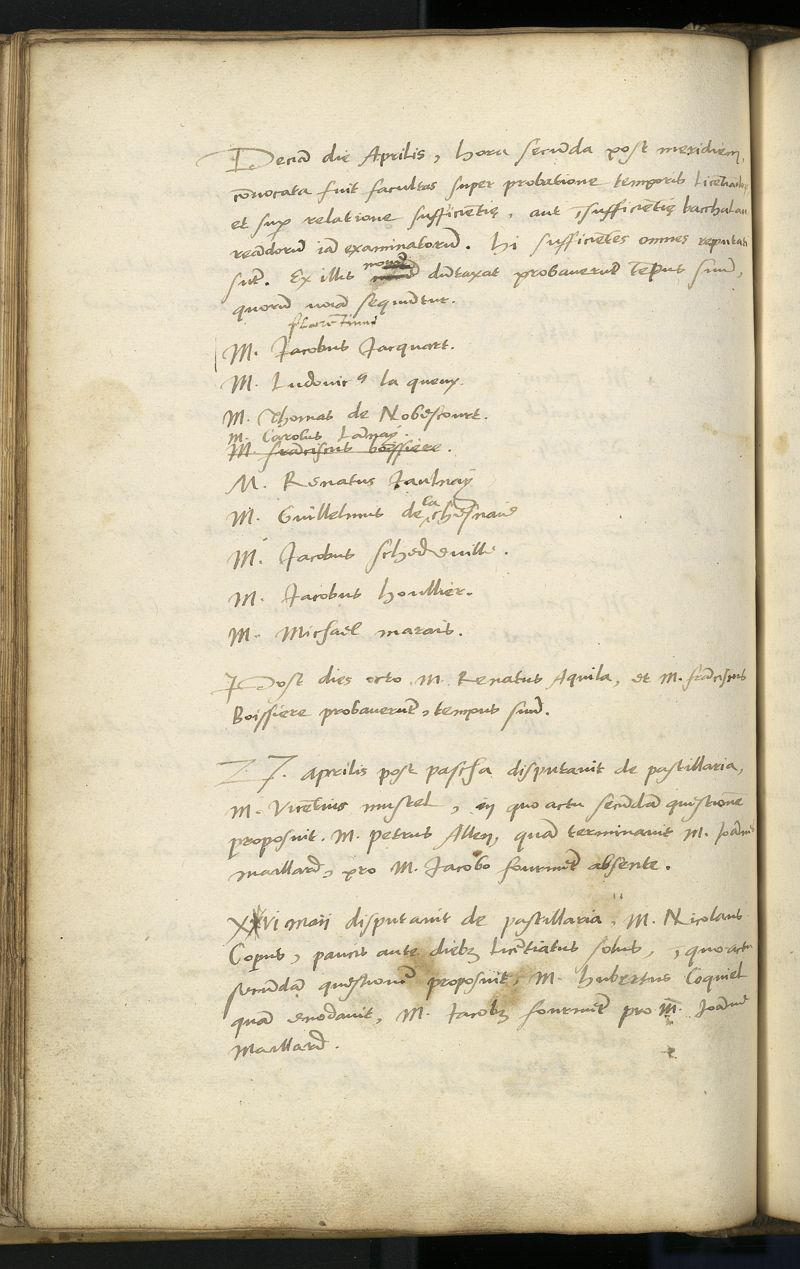 Decīa die Aprilis, hora secūda post meridiem,
cōvocata fuit facultas super probatione temporis
et sup relatione sufficiētię, aut īsufficiētię bacchalau
reādorū iā examinatorū. hi sufficiētes omnes reputati
sūt. Ex illis duntaxat probaverūt tēpus suū,
quorū noīa sequūtur.
florētinus
M. Jacobus Jacquart.
M. Ludovicꝰ la queux.
M. Thomas de Nobescourt.
M. Carolus Lānay.
M. frāciscus boissiere.
M. Renatus Jaulnay
M. Guillelmus de la chesnaie
M. Jacobus schedeville.
M. Jacobus houllier.
M. Michael marais.
Post dies octo M. Renatus Aquila, et M. frāciscus
Boissiere probaverūt, tempus suū.
27. aprilis post pascha disputavit de pastillaria,
M. Vicētius mustel, in quo actu secūdā quęstionē
proposuit. M. Petrus Allen, quā terminavit M. Joānes
maillard, pro M. Jacobo fourmēt absente.
XXVI maii disputavit de pastillaria, M. Nicolaus
Copus, paucis ante diebꝫ licētiatus solus, ī quo actu
secūdā quęstionē proposuit, M. hubertus Coquiel
quā enodavit, M. Jacobꝫ fourmēt pro M. Joāne
Maillard.